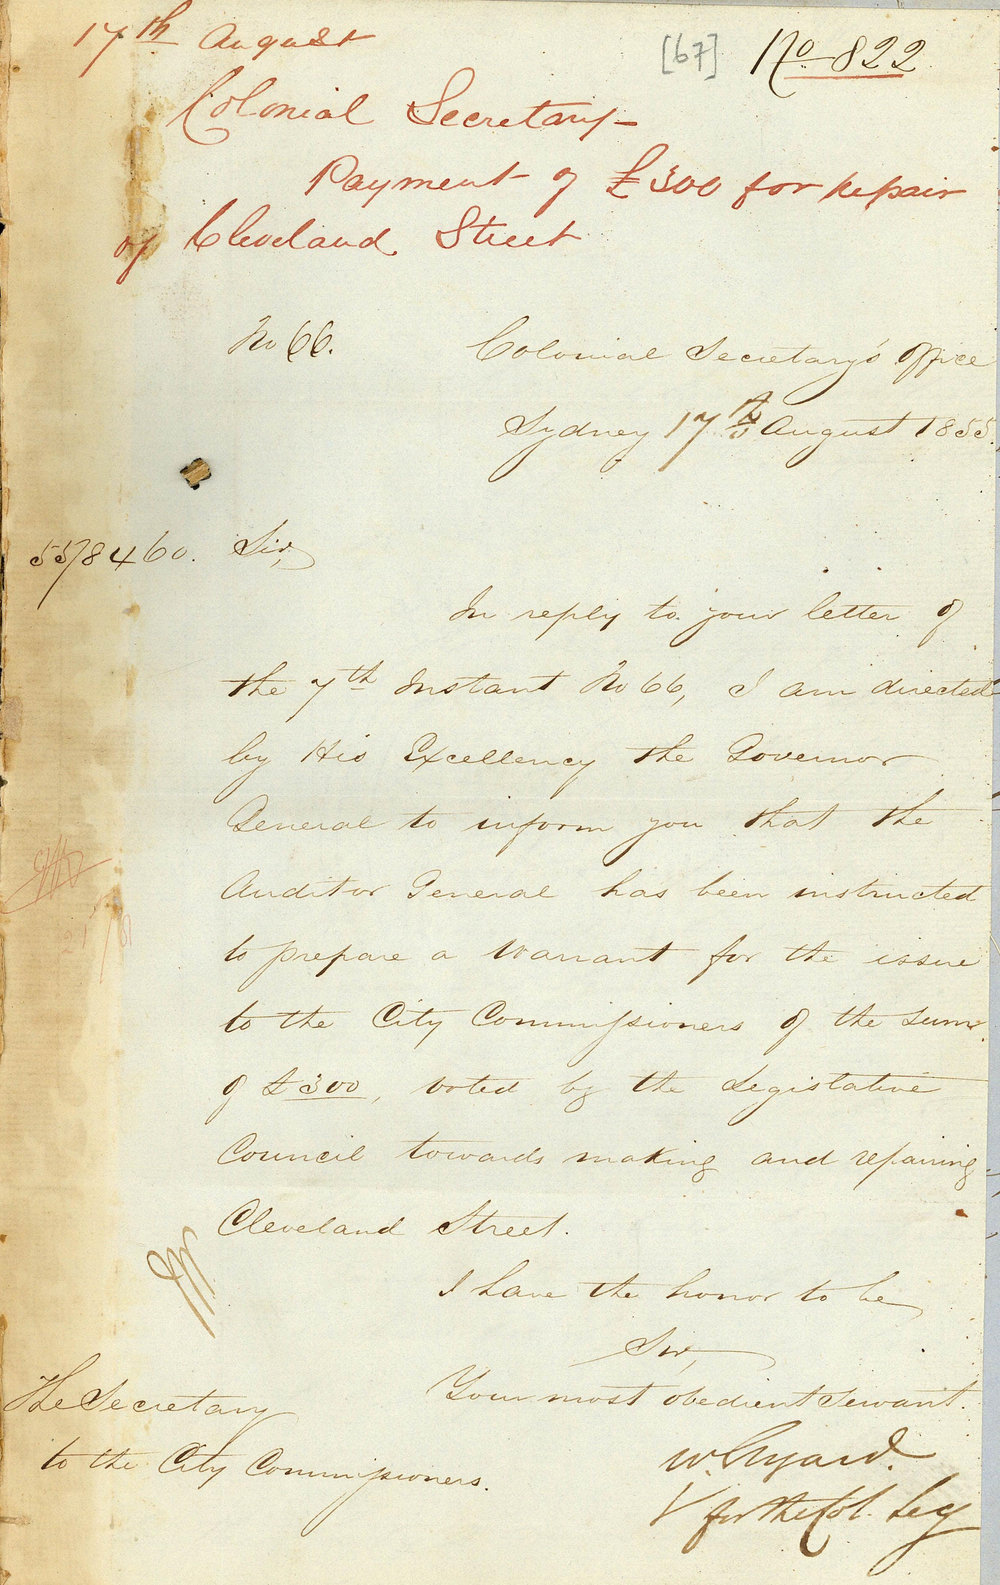 17th August
[67] No 822
Colonial Secretary -
Payment of £300 for repair
of Cleveland Street
No 66.
Colonial Secretary's Office
Sydney 17th August 1855
55/8460.
Sir,
In reply to your letter of
the 7th Instant No 66, I am directed
by His Excellency the Governor
General to inform you that the
Auditor General has been instructed
to prepare a Warrant for the issue
to the City Commissioners of the sum
of £300, voted by the Legislative
Council towards making and repairing
Cleveland Street.
I have the honor to be
Sir,
Your most obedient Servant.
W. Elyard.
for the Col. Secy
The Secretary
to the City Commissioners.